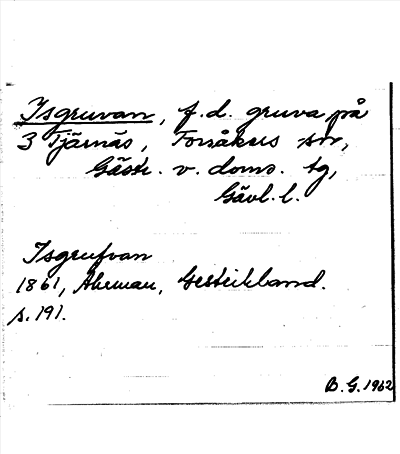 Isgruvan, f.d. gruva på
3 Tjärnäs, Torsåkers sn,
Gästr. v. doms. tg,
Gävl. l.
Isgrufvan
1861, Ahrman, Gestrikland.
s. 191.
B. G. 1962